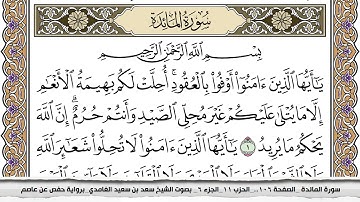 سُورَةُ المَائِدَةِ
بِسْمِ اللَّهِ الرَّحْمَٰنِ الرَّحِيمِ
يَٰٓأَيُّهَا الَّذِينَ ءَامَنُوٓا۟ أَوْفُوا۟ بِالْعُقُودِ ۚ أُحِلَّتْ لَكُم بَهِيمَةُ الْأَنْعَٰمِ
إِلَّا مَا يُتْلَىٰ عَلَيْكُمْ غَيْرَ مُحِلِّى الصَّيْدِ وَأَنتُمْ حُرُمٌ ۗ إِنَّ اللَّهَ
يَحْكُمُ مَا يُرِيدُ ١ يَٰٓأَيُّهَا الَّذِينَ ءَامَنُوا۟ لَا تُحِلُّوا۟ شَعَٰٓئِرَ اللَّهِ
سورة المائدة _الصفحة ١٠٦_ الحزب ١١_الجزء ٦_ بصوت الشيخ سعد بن سعيد الغامدي_ برواية حفص عن عاصم